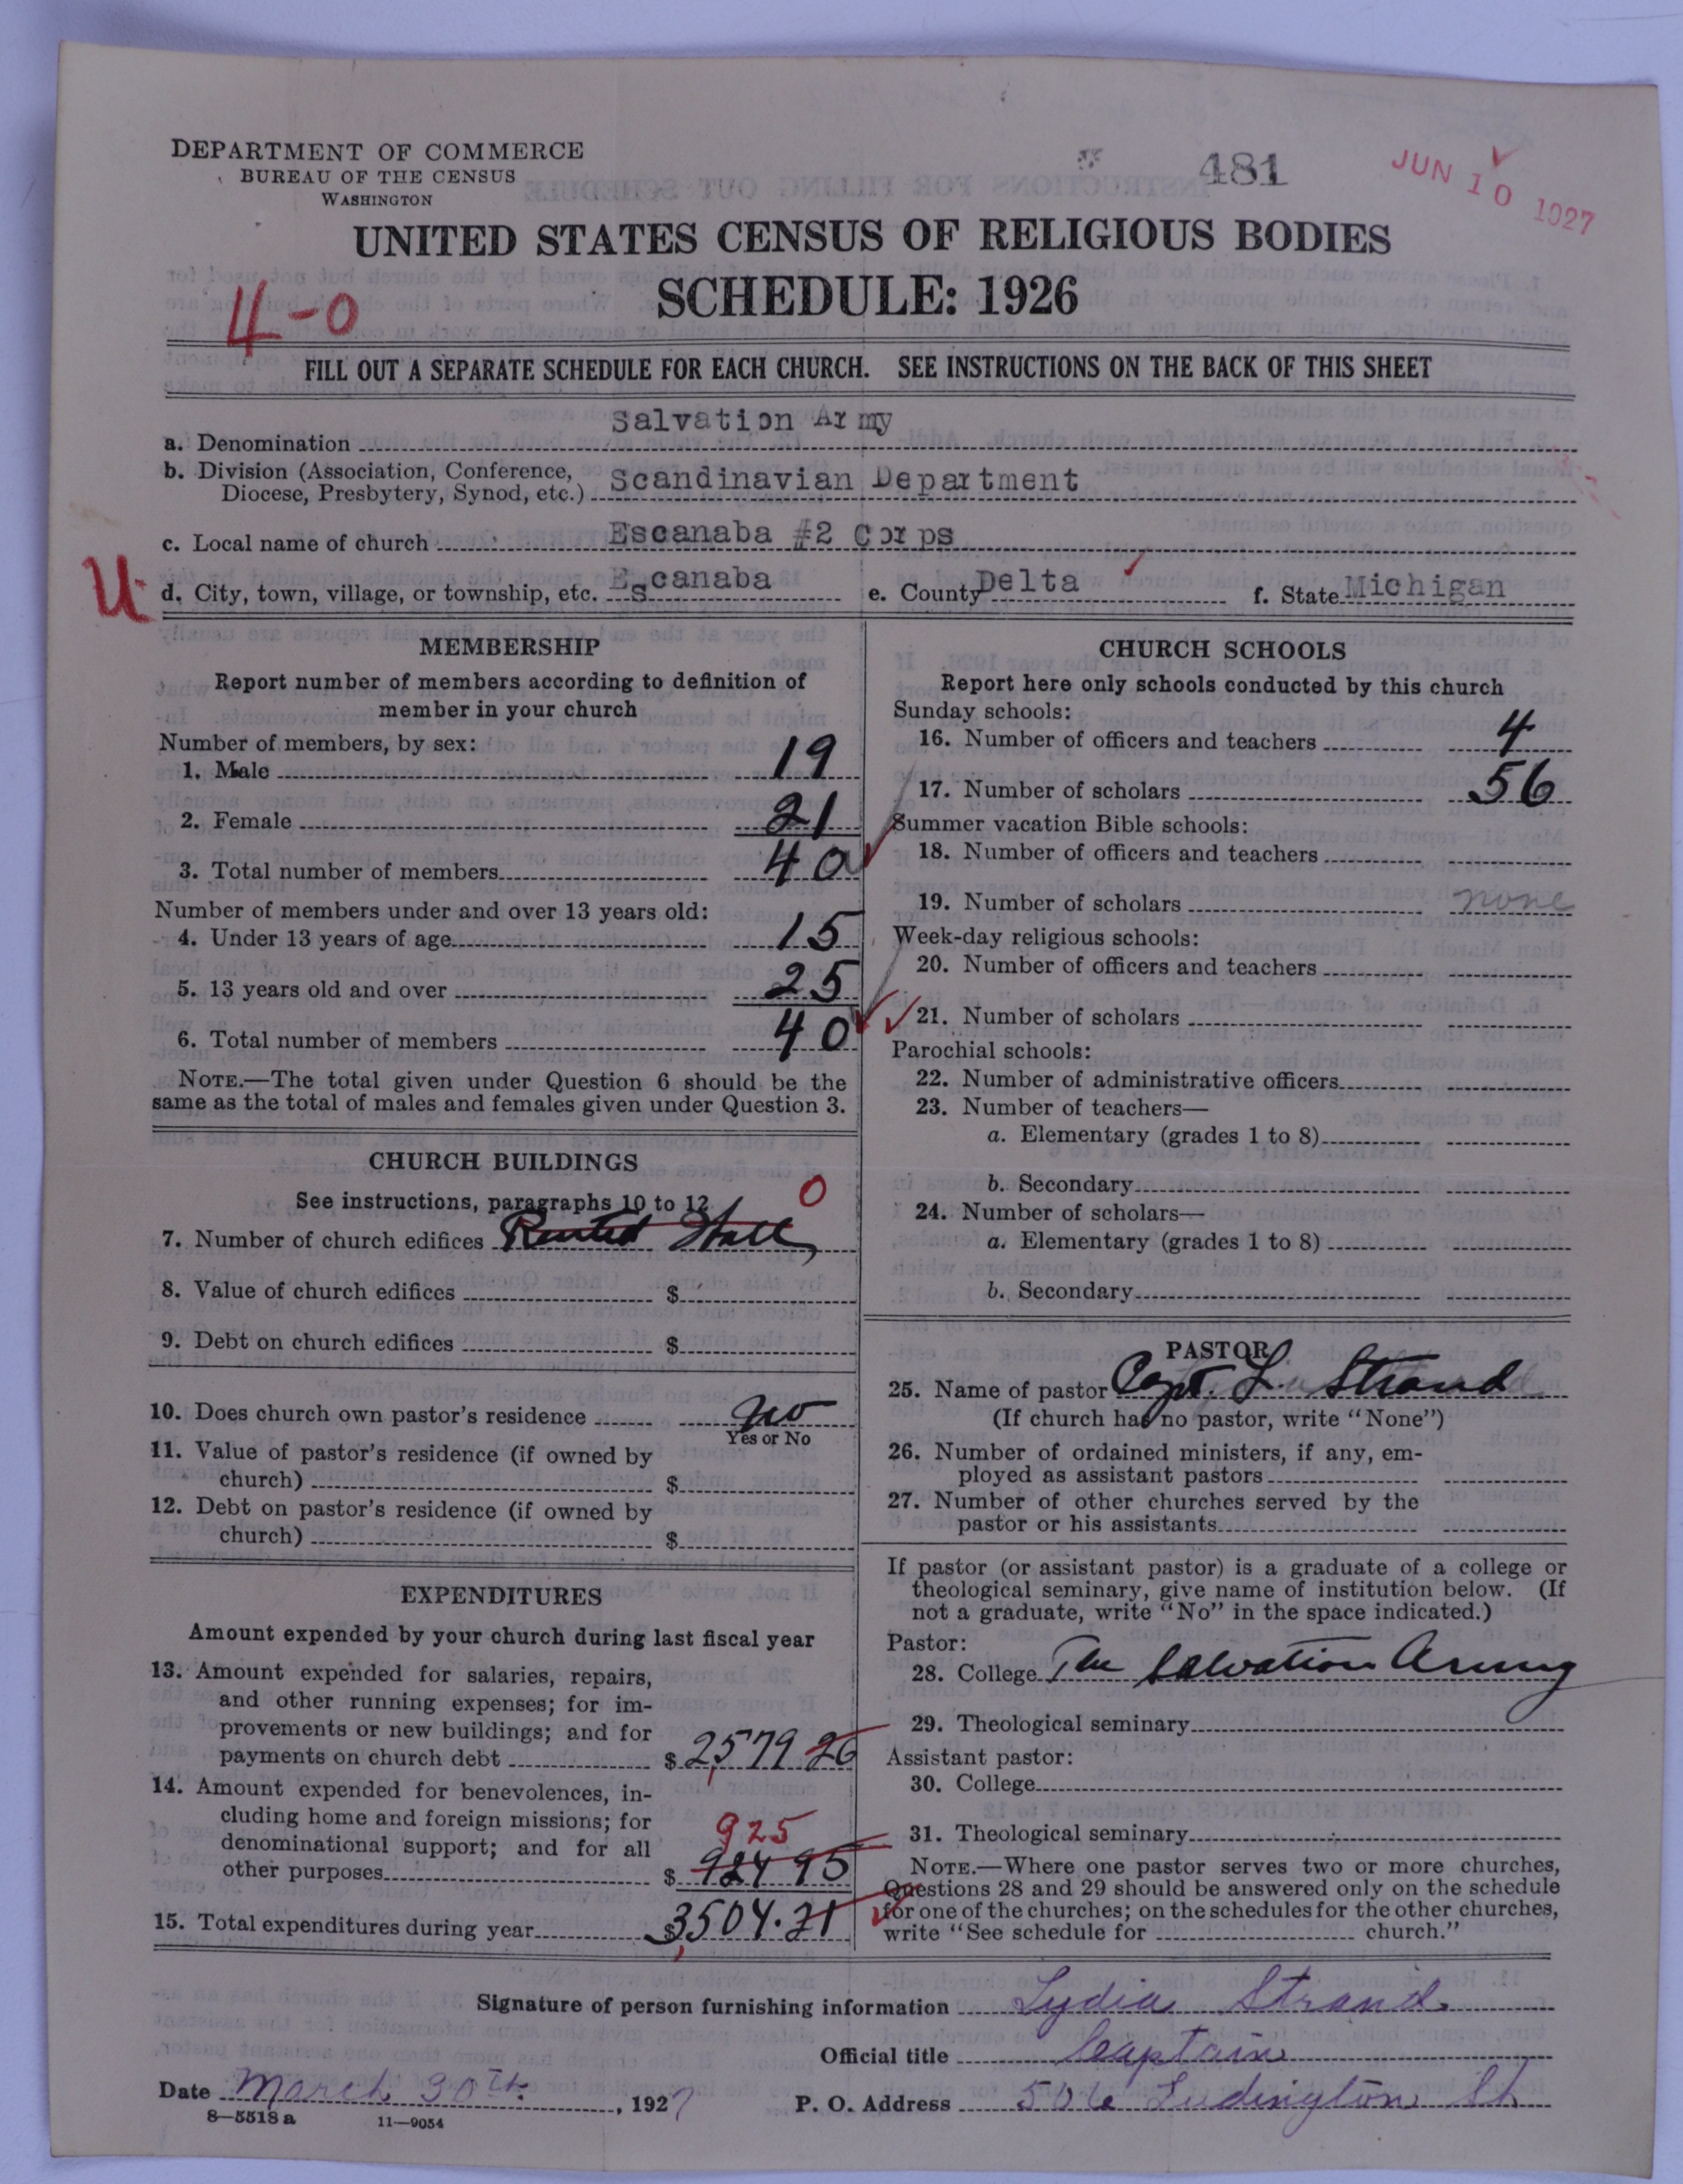 DEPARTMENT OF COMMERCE
BUREAU OF THE CENSUS
WASHINGTON
481
JUN 10 1927
UNITED STATES CENSUS OF RELIGIOUS BODIES
SCHEDULE: 1926
4-0
FILL OUT A SEPARATE SCHEDULE FOR EACH CHURCH. SEE INSTRUCTIONS ON THE BACK OF THIS SHEET
a. Denomination Salvation Army
b. Division (Association, Conference,
Diocese, Presbytery, Synod, etc.) Scandinavian Department
c. Local name of church Escanaba #2 Corps
U
d. City, town, village, or township, etc. Escanaba e. County Delta f. State Michigan
MEMBERSHIP
Report number of members according to definition of
member in your church
Number of members, by sex:
1. Male 19
2. Female 21
3. Total number of members 40 a
Number of members under and over 13 years old:
4. Under 13 years of age 15
5. 13 years old and over 25
6. Total number of members 40
NOTE.—The total given under Question 6 should be the
same as the total of males and females given under Question 3.
CHURCH BUILDINGS
See instructions, paragraphs 10 to 12
0
7. Number of church edifices Rented Hall
8. Value of church edifices $
9. Debt on church edifices $
10. Does church own pastor's residence no
Yes or No
11. Value of pastor's residence (if owned by
church) $
12. Debt on pastor's residence (if owned by
church) $
EXPENDITURES
Amount expended by your church during last fiscal year
13. Amount expended for salaries, repairs,
and other running expenses; for im-
provements or new buildings; and for
payments on church debt $ 2,579 26
14. Amount expended for benevolences, in-
cluding home and foreign missions; for
denominational support; and for all
925
other purposes $ 924 95
15. Total expenditures during year $ 3,504.21
CHURCH SCHOOLS
Report here only schools conducted by this church
Sunday schools:
16. Number of officers and teachers 4
17. Number of scholars 56
Summer vacation Bible schools:
18. Number of officers and teachers
19. Number of scholars none
Week-day religious schools:
20. Number of officers and teachers
21. Number of scholars
Parochial schools:
22. Number of administrative officers
23. Number of teachers—
a. Elementary (grades 1 to 8)
b. Secondary
24. Number of scholars—
a. Elementary (grades 1 to 8)
b. Secondary
PASTOR
25. Name of pastor Capt. L. Strand
(If church has no pastor, write "None")
26. Number of ordained ministers, if any, em-
ployed as assistant pastors
27. Number of other churches served by the
pastor or his assistants
If pastor (or assistant pastor) is a graduate of a college or
theological seminary, give name of institution below. (If
not a graduate, write "No" in the space indicated.)
Pastor:
28. College The Salvation Army
29. Theological seminary
Assistant pastor:
30. College
31. Theological seminary
NOTE.—Where one pastor serves two or more churches,
Questions 28 and 29 should be answered only on the schedule
for one of the churches; on the schedules for the other churches,
write "See schedule for church."
Signature of person furnishing information Lydia Strand
Official title Captain
Date March 30th, 1927 P. O. Address 506 Ludington St
8—5518 a 11—9054